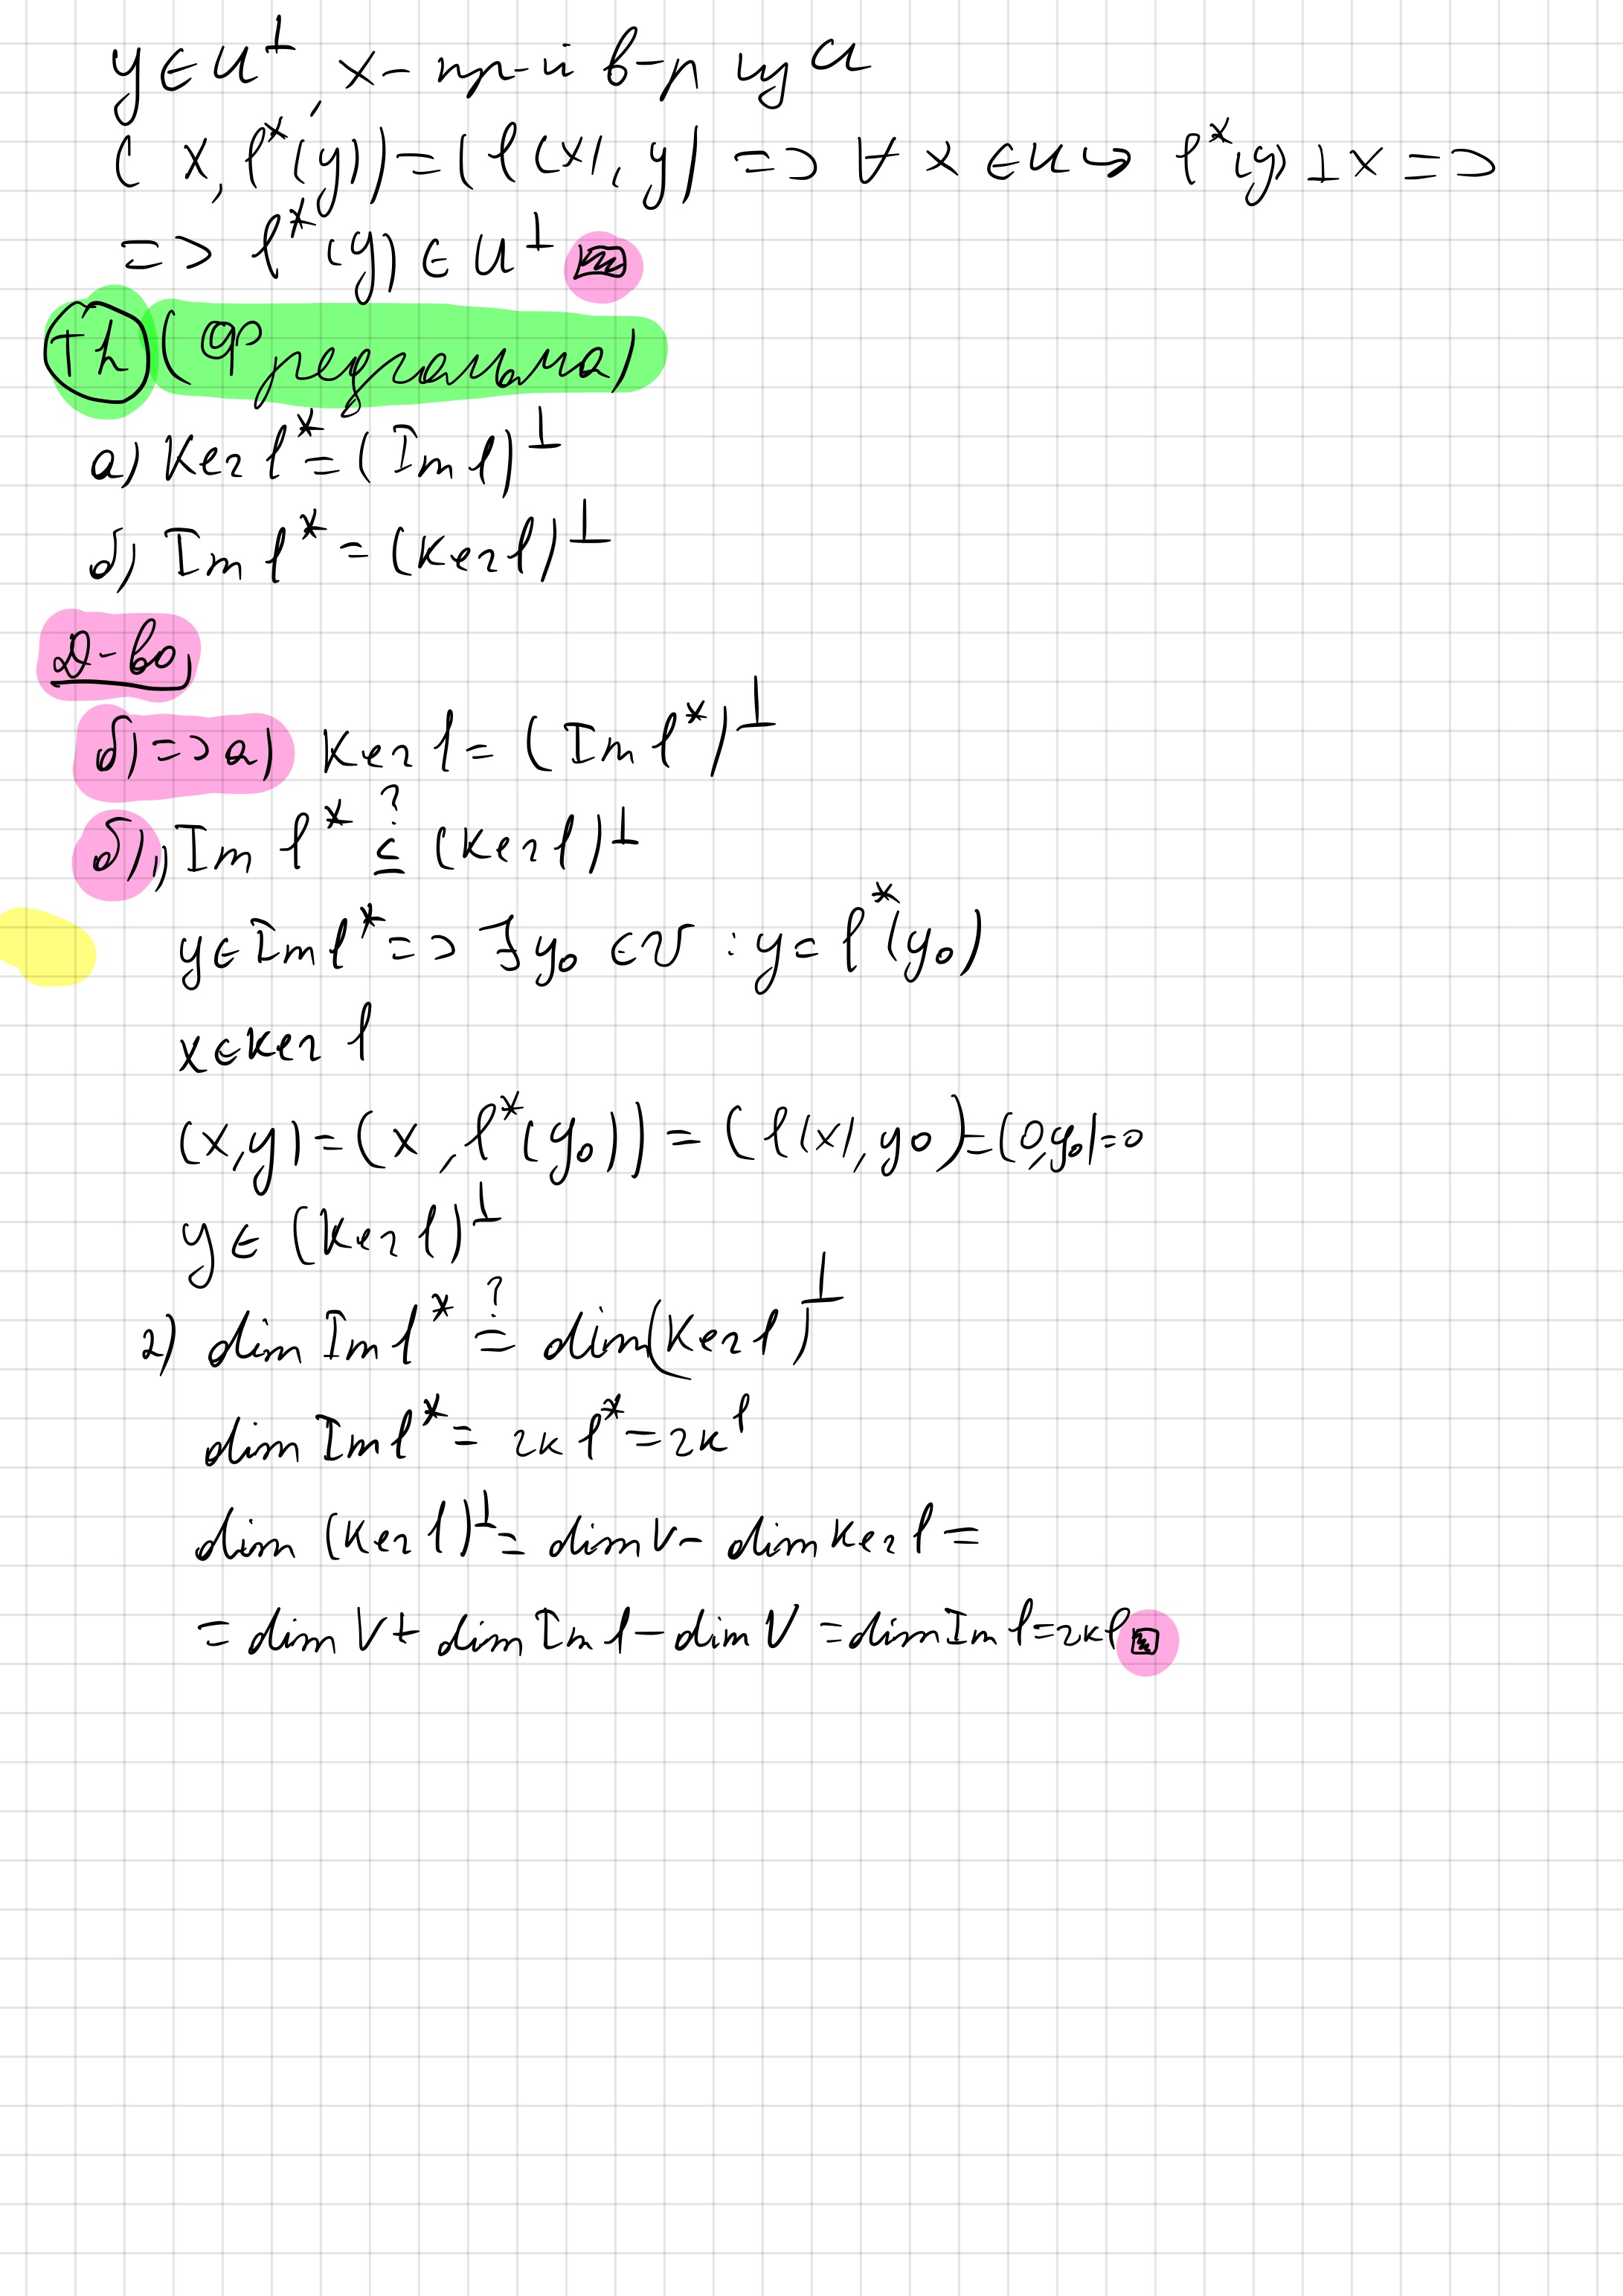 y ∈ U⊥, x – пр-й в-р из U
(x, f*(y)) = (f(x), y) => ∀ x ∈ U ↪ f*(y) ⊥ x =>
=> f*(y) ∈ U⊥
Th (Фредгольма)
а) Ker f* = (Im f)⊥
б) Im f* = (Ker f)⊥
Д-во,
б) => а) Ker f = (Im f*)⊥
б) 1) Im f* ⊆? (Ker f)⊥
y ∈ Im f* => ∃ y₀ ∈ V : y = f*(y₀)
x ∈ Ker f
(x, y) = (x, f*(y₀)) = (f(x), y₀) = (0, y₀) = 0
y ∈ (Ker f)⊥
2) dim Im f* =? dim(Ker f)⊥
dim Im f* = rk f* = rk f
dim (Ker f)⊥ = dim V – dim Ker f =
= dim V + dim Im f – dim V = dim Im f = rk f